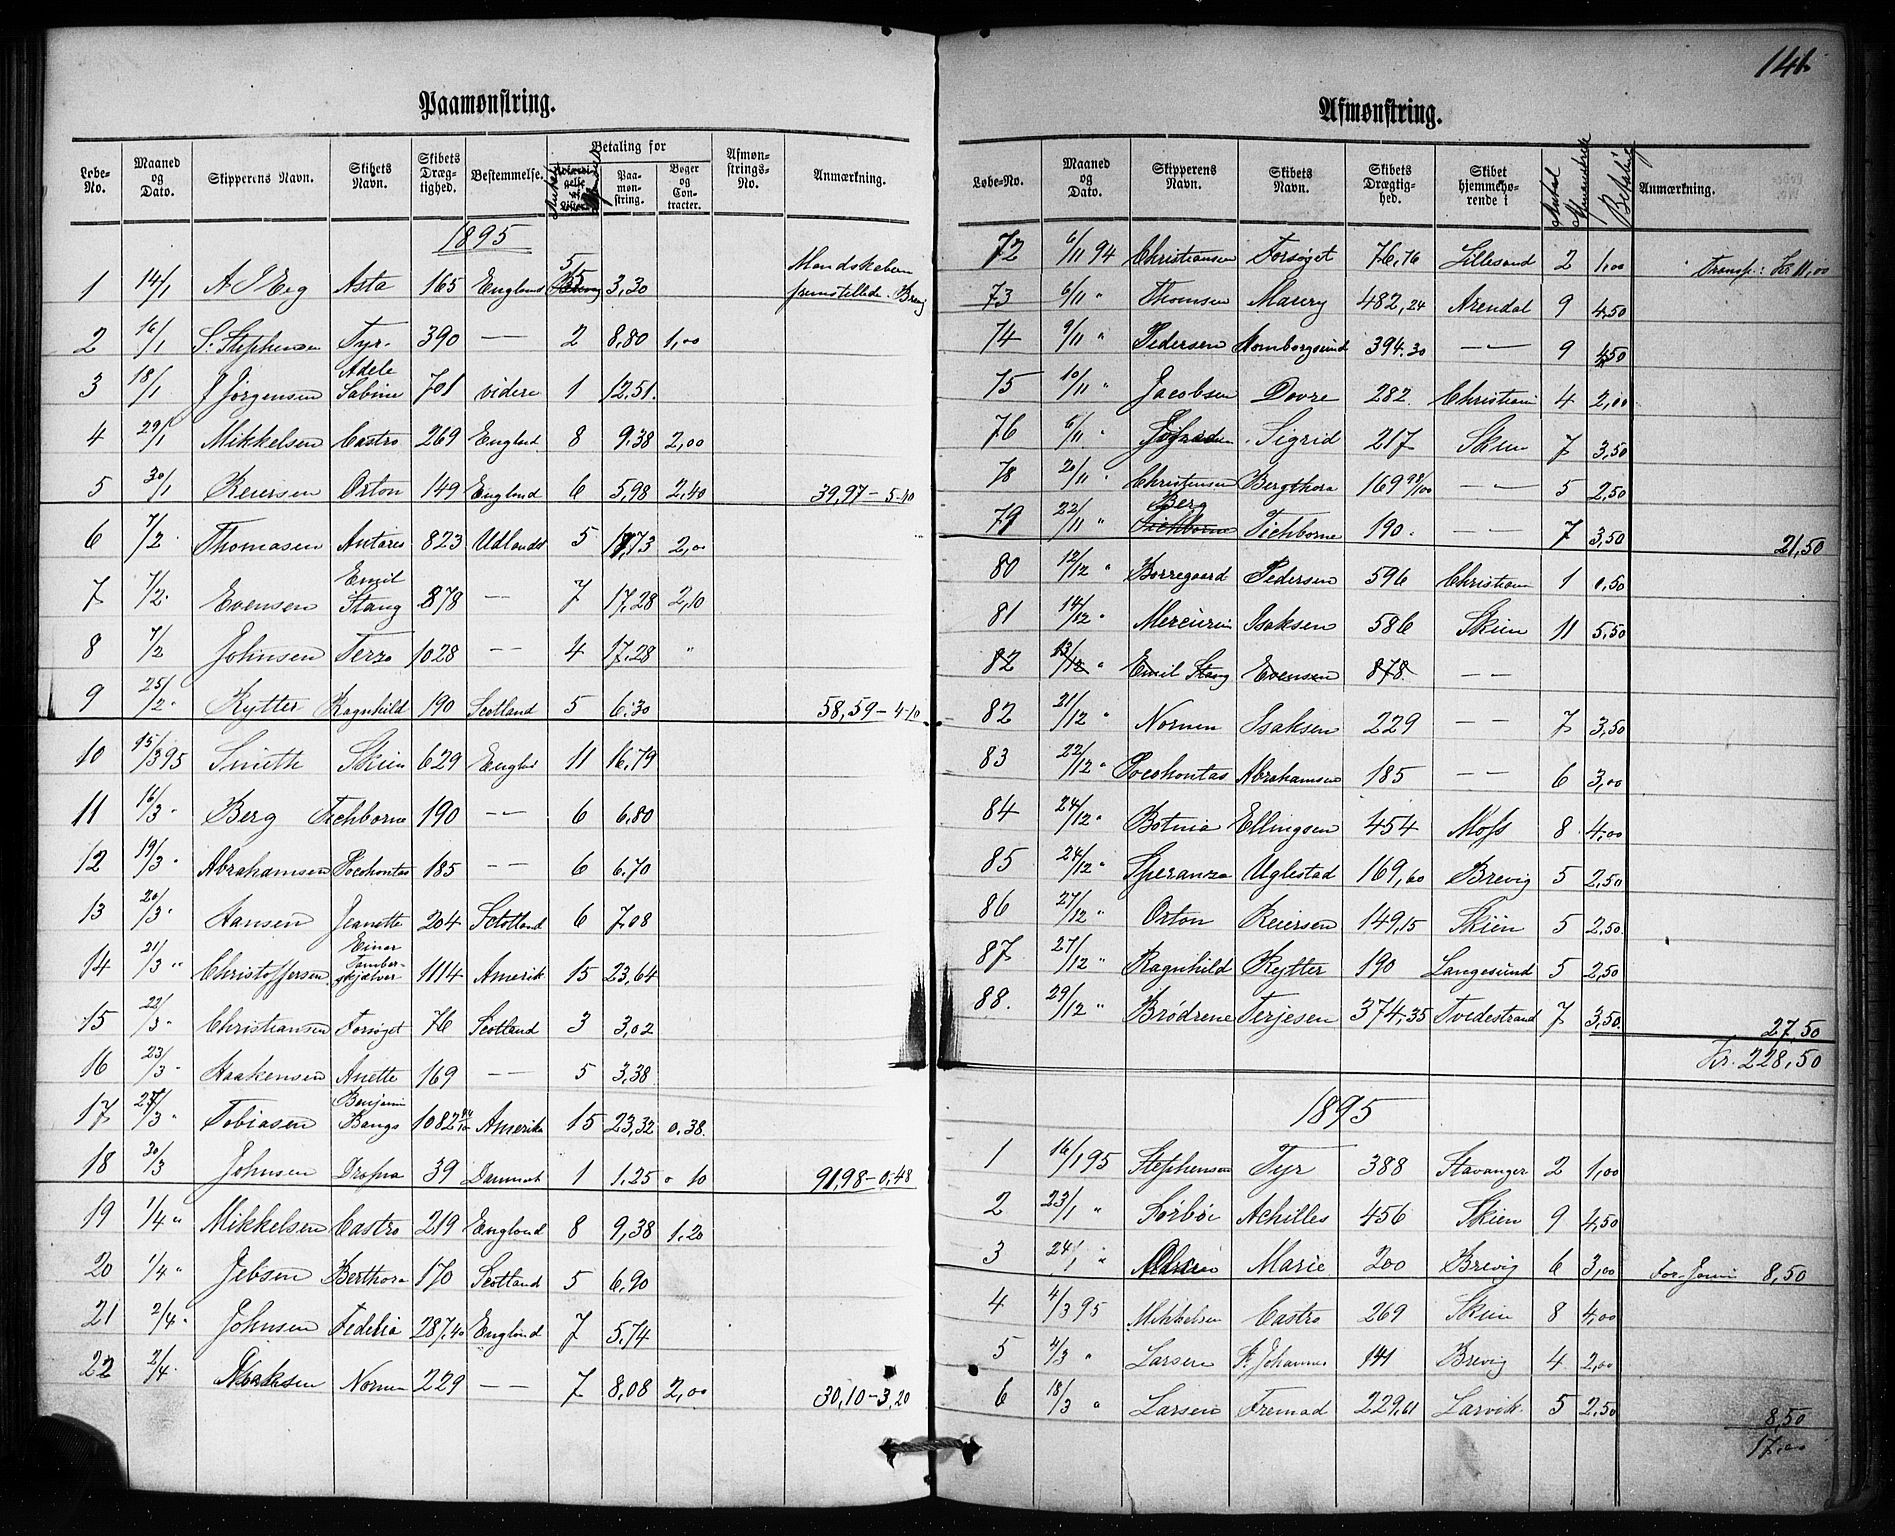 141
Paamønstring.
Løbe-No. | Maaned og Dato. | Skipperens Navn. | Skibets Navn. | Skibets Drægtighed. | Bestemmelse. | Betaling for | Paamønstring. | Bøger og Contracter. | Afmønstrings-No. | Anmærkning.
1895
1 14/1 Asta 165 England 5 3,30 Mandskaberne
2 16/1 S. Stephensen Tyr. 390 — 2 8,80 1,00
3 18/1 J Jørgensen Adele Sabine 701 videre 1 12,51.
4 29/1 Mikkelsen Castro 269 England 8 9,38 2,00
5 30/1 Reiersen Orton 149 England 6 5,98 2,40 39,97 – 5-40
6 7/2 Thomasen Antares 823 Udlandet 5 2,00
7 7/2. Evensen Emil Stang 878 — 7 17,28 2,10
8 7/2 Johnsen Terzo 1028 — 4 17,28 "
9 25/2. Rytter Ragnhild 190 Scotland 5 6,30 58,59 – 4-10
10 15/3 95 Smith Skien 629 Engld 11 16,79
11 16/3 " Berg Tichborne 190 — 6 6,80
12 19/3 " Abrahamsen Pocohontas 185 — 6 6,70
13 20/3 " Hansen Jeanette 204 Scotland 6 7,08
14 21/3 " Christoffersen Einar Tamberskjælver 1114 Amerik 15 23,64
15 22/3 " Christiansen Forsøget 76 Scotland 3 3,02
16 23/3 " Haakensen Anette 169 — 5 3,38
17 27/3 " Tobiasen Benjamin Bangs 1082 Amerika 15 23,32 0,38.
18 30/3 Johnsen Drafna 39 Danmark 1 1,25 0 10 91,98 – 0,48
19 1/4 " Mikkelsen Castro 219 England 8 9,38 1,20
20 1/4 " Jebsen Berthora 170 Scotland 5 6,90
21 2/4 " Johnsen Fedelia 287,40 England 7 5,74
22 2/4. Nornen 229 — 7 8,08 2,00 30,10 – 3,20
Afmønstring.
Løbe-No. | Maaned og Dato. | Skipperens Navn. | Skibets Navn. | Skibets Drægtighed. | Skibet hjemmehørende i | Antal Mandskab | Betaling | Anmærkning.
72 6/11 94 Christiansen Forsøget 76,76 Lillesand 2 1,00 Transp.: Kr 11,00
73 6/11 " Thomsen 482,24 Arendal 9 4,50
74 9/11 " Pedersen Homborgsund 394,30 — 9 4,50
75 10/11 " Jacobsen Dovre 282 Christiania 4 2,00
76 6/11 " Sigrid 217 Skien 7 3,50
78 20/11 " Christensen Bergthora 169 92/100 — 5 2,50
79 22/11 " Berg Tichborne Tichborne 190 — 7 3,50 21,50
80 12/12 " Borregaard Pedersen 596 Christiania 1 0,50
81 14/12 " Mercurius Isaksen 586 Skien 11 5,50
82 13/12 " Emil Stang Evensen 878 —
82 21/12 " Nornen Isaksen 229 — 7 3,50
83 22/12 " Pocohontas Abrahamsen 185 — 6 3,00
84 24/12 " Botnia Ellingsen 454 Moss 8 4,00
85 24/12 " Speranza Uglestad 169,60 Brevig 5 2,50
86 27/12 " Orton Reiersen 149,15 Skien 5 2,50
87 27/12 " Ragnhild Rytter 190 Langesund 5 2,50
88. 29/12 " Brødrene Terjesen 374,35 Tvedestrand 7 3,50 27,50
Kr. 228,50
1895
1 16/1 95 Stephensen Tyr 388 Stavanger 2 1,00
2 23/1 " Sørbøe Achilles 456 Skien 9 4,50
3 24/1 " Marie 200 Brevig 6 3,00 8,50
4 4/3 95 Mikkelsen Castro 269 Skien 8 4,00
5 4/3 " Larsen St. Johannes 141 Brevig 4 2,00
6 18/3 " Larsen Fremad 229,61 Larvik 5 2,50
8,50
17,00